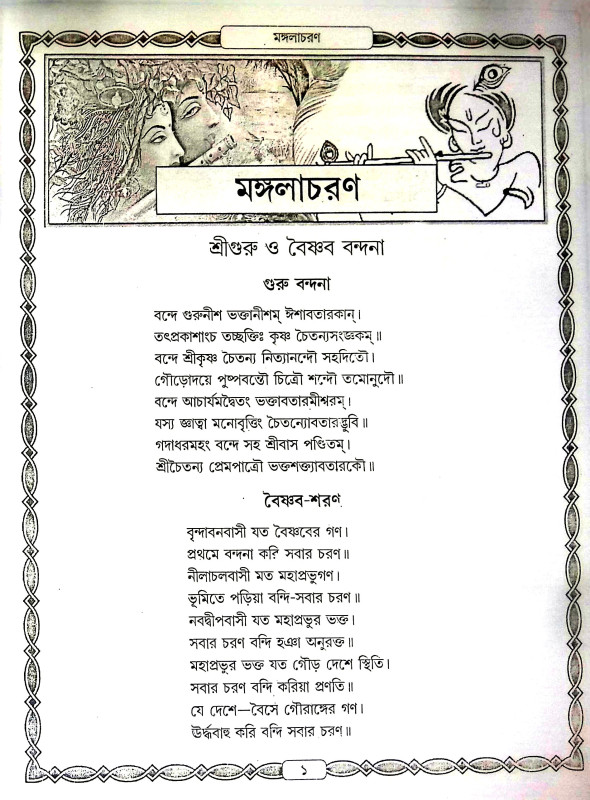 মঙ্গলাচরণ
মঙ্গলাচরণ
শ্রীগুরু ও বৈষ্ণব বন্দনা
গুরু বন্দনা
বন্দে গুরুনীশ ভক্তানীশম্ ঈশাবতারকান্।
তৎপ্রকাশাংচ তচ্ছক্তিঃ কৃষ্ণ চৈতন্যসংজ্ঞকম্॥
বন্দে শ্রীকৃষ্ণ চৈতন্য নিত্যানন্দৌ সহদিতৌ।
গৌড়োদয়ে পুষ্পবন্তৌ চিত্রৌ শন্দৌ তমোনুদৌ॥
বন্দে আচার্যমদ্বৈতং ভক্তাবতারমীশ্বরম্।
যস্য জ্ঞাত্বা মনোবৃত্তিং চৈতন্যোবতারদ্ভুবি॥
গদাধরমহং বন্দে সহ শ্রীবাস পণ্ডিতম্।
শ্রীচৈতন্য প্রেমপাত্রৌ ভক্তশক্ত্যাবতারকৌ॥
বৈষ্ণব-শরণ
বৃন্দাবনবাসী যত বৈষ্ণবের গণ।
প্রথমে বন্দনা করি সবার চরণ॥
নীলাচলবাসী মত মহাপ্রভুগণ।
ভূমিতে পড়িয়া বন্দি-সবার চরণ॥
নবদ্বীপবাসী যত মহাপ্রভুর ভক্ত।
সবার চরণ বন্দি হঞা অনুরক্ত॥
মহাপ্রভুর ভক্ত যত গৌড় দেশে স্থিতি।
সবার চরণ বন্দি করিয়া প্রণতি॥
যে দেশে—বৈসে গৌরাঙ্গের গণ।
ঊর্দ্ধবাহু করি বন্দি সবার চরণ॥
১